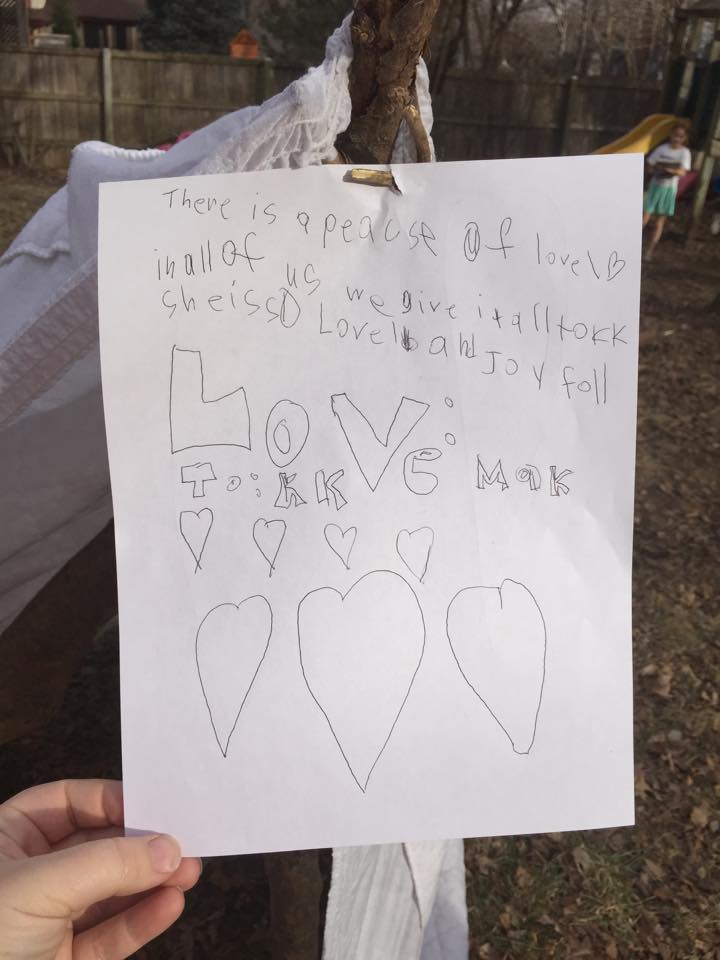 There is a peacuse of lovely
in all of us we give it all to KK
she is so Lovelb and Joy foll
LOVE:
To: KK Mak